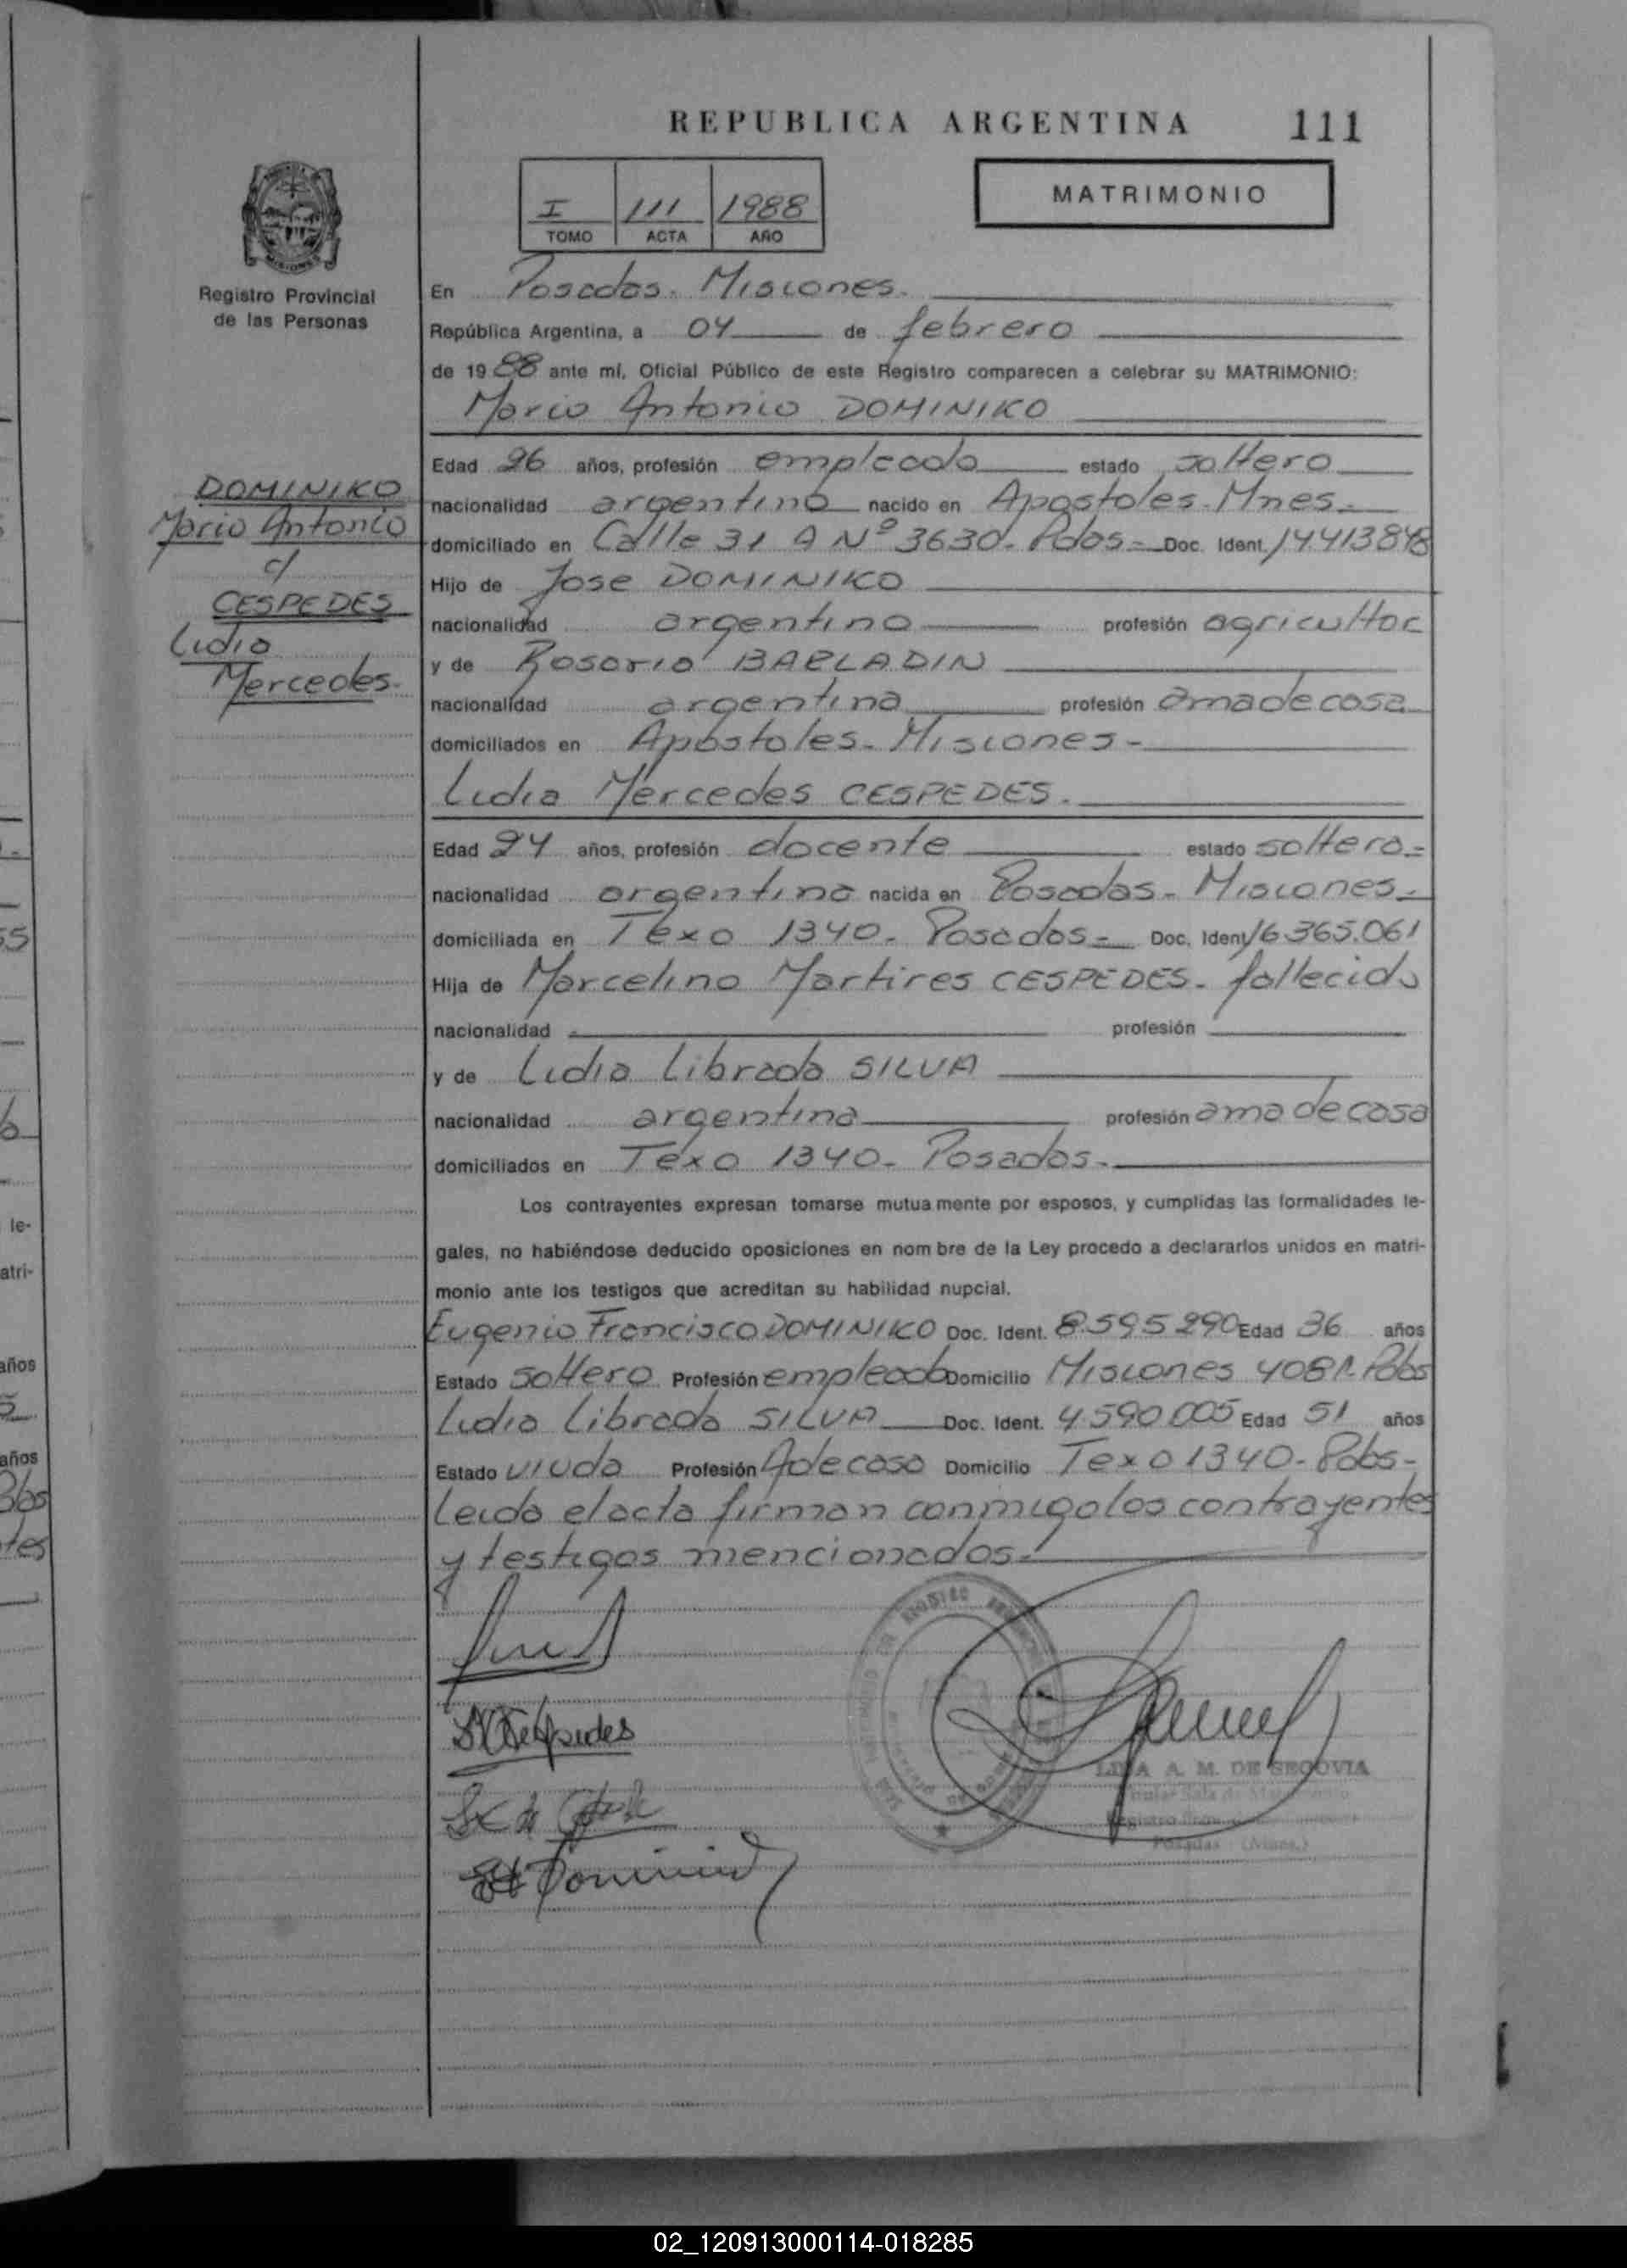 REPUBLICA ARGENTINA 111
MATRIMONIO
I 111 1988
TOMO ACTA AÑO
Registro Provincial
de las Personas
En Posadas. Misiones.
República Argentina, a 04 de febrero
de 1988 ante mí, Oficial Público de este Registro comparecen a celebrar su MATRIMONIO:
Mario Antonio DOMINIKO
DOMINIKO
Mario Antonio
c/
CESPEDES
Lidia
Mercedes.
Edad 26 años, profesión empleado estado soltero
nacionalidad argentino nacido en Apostoles. Mnes.
domiciliado en Calle 31 A Nº 3630. Pdas- Doc. Ident. 14413848
Hijo de Jose DOMINIKO
nacionalidad argentino profesión agricultor
y de Rosario BARLADIN
nacionalidad argentina profesión ama de casa
domiciliados en Apostoles. Misiones-
Lidia Mercedes CESPEDES.
Edad 24 años, profesión docente estado soltera-
nacionalidad argentina nacida en Posadas- Misiones-
domiciliada en Texo 1340. Posadas- Doc. Ident. 16365.061
Hija de Marcelino Martires CESPEDES- fallecido
nacionalidad profesión
y de Lidia Librada SILVA
nacionalidad argentina profesión ama de casa
domiciliados en Texo 1340- Posadas-
Los contrayentes expresan tomarse mutuamente por esposos, y cumplidas las formalidades le-
gales, no habiéndose deducido oposiciones en nombre de la Ley procedo a declararlos unidos en matri-
monio ante los testigos que acreditan su habilidad nupcial.
Eugenio Francisco DOMINIKO Doc. Ident. 8.595290 Edad 36 años
Estado soltero Profesión empleado Domicilio Misiones 408 Pdas
Lidia Librada SILVA Doc. Ident. 4.590.005 Edad 51 años
Estado viuda Profesión A de casa Domicilio Texo 1340- Pdas-
Leida el acta firman conmigo los contrayentes
y testigos mencionados-
A. M. DE SEGOVIA
Posadas (Mnes.)
02_120913000114-018285